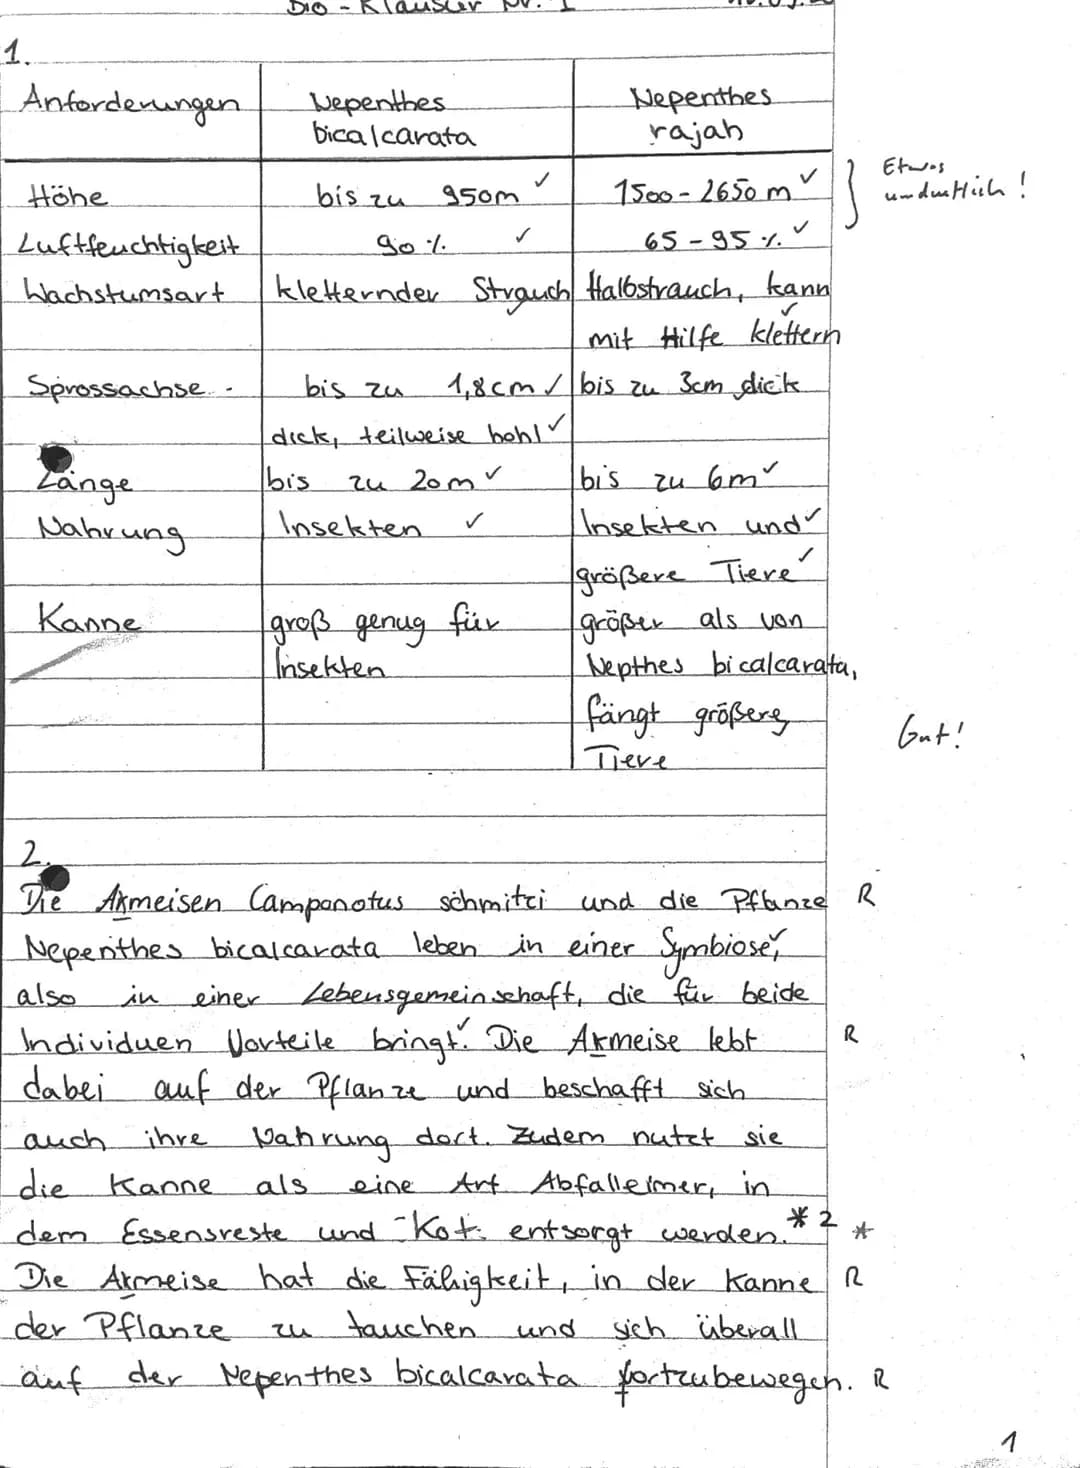 Bio - Klausur Nr. 1
1.
Anforderungen | Nepenthes bicalcarata | Nepenthes rajah
Höhe | bis zu 950m ✓ | 1500 - 2650 m ✓ Etwas undeutlich!
Luftfeuchtigkeit | 90 % ✓ | 65 - 95 % ✓
Wachstumsart | kletternder Strauch ✓ | Halbstrauch, kann
mit Hilfe klettern ✓
Sprossachse - | bis zu 1,8cm ✓ | bis zu 3cm dick
dick, teilweise hohl ✓
Länge | bis zu 20m ✓ | bis zu 6m ✓
Nahrung | Insekten ✓ | Insekten und ✓
größere Tiere ✓
Kanne | groß genug für | größer als von
Insekten | Nepthes bicalcarata,
fängt größere Gut!
Tiere
2.
Die Akmeisen Camponotus schmitzi und die Pflanze R
Nepenthes bicalcarata leben in einer Symbiose ✓,
also in einer Lebensgemeinschaft, die für beide
Individuen Vorteile bringt ✓. Die Akmeise lebt R
dabei auf der Pflanze und beschafft sich
auch ihre Nahrung dort. Zudem nutzt sie
die Kanne als eine Art Abfalleimer, in
dem Essensreste und Kot entsorgt werden. *2 *
Die Akmeise hat die Fähigkeit, in der Kanne R
der Pflanze zu tauchen und sich überall
auf der Nepenthes bicalcarata fortzubewegen. R
1